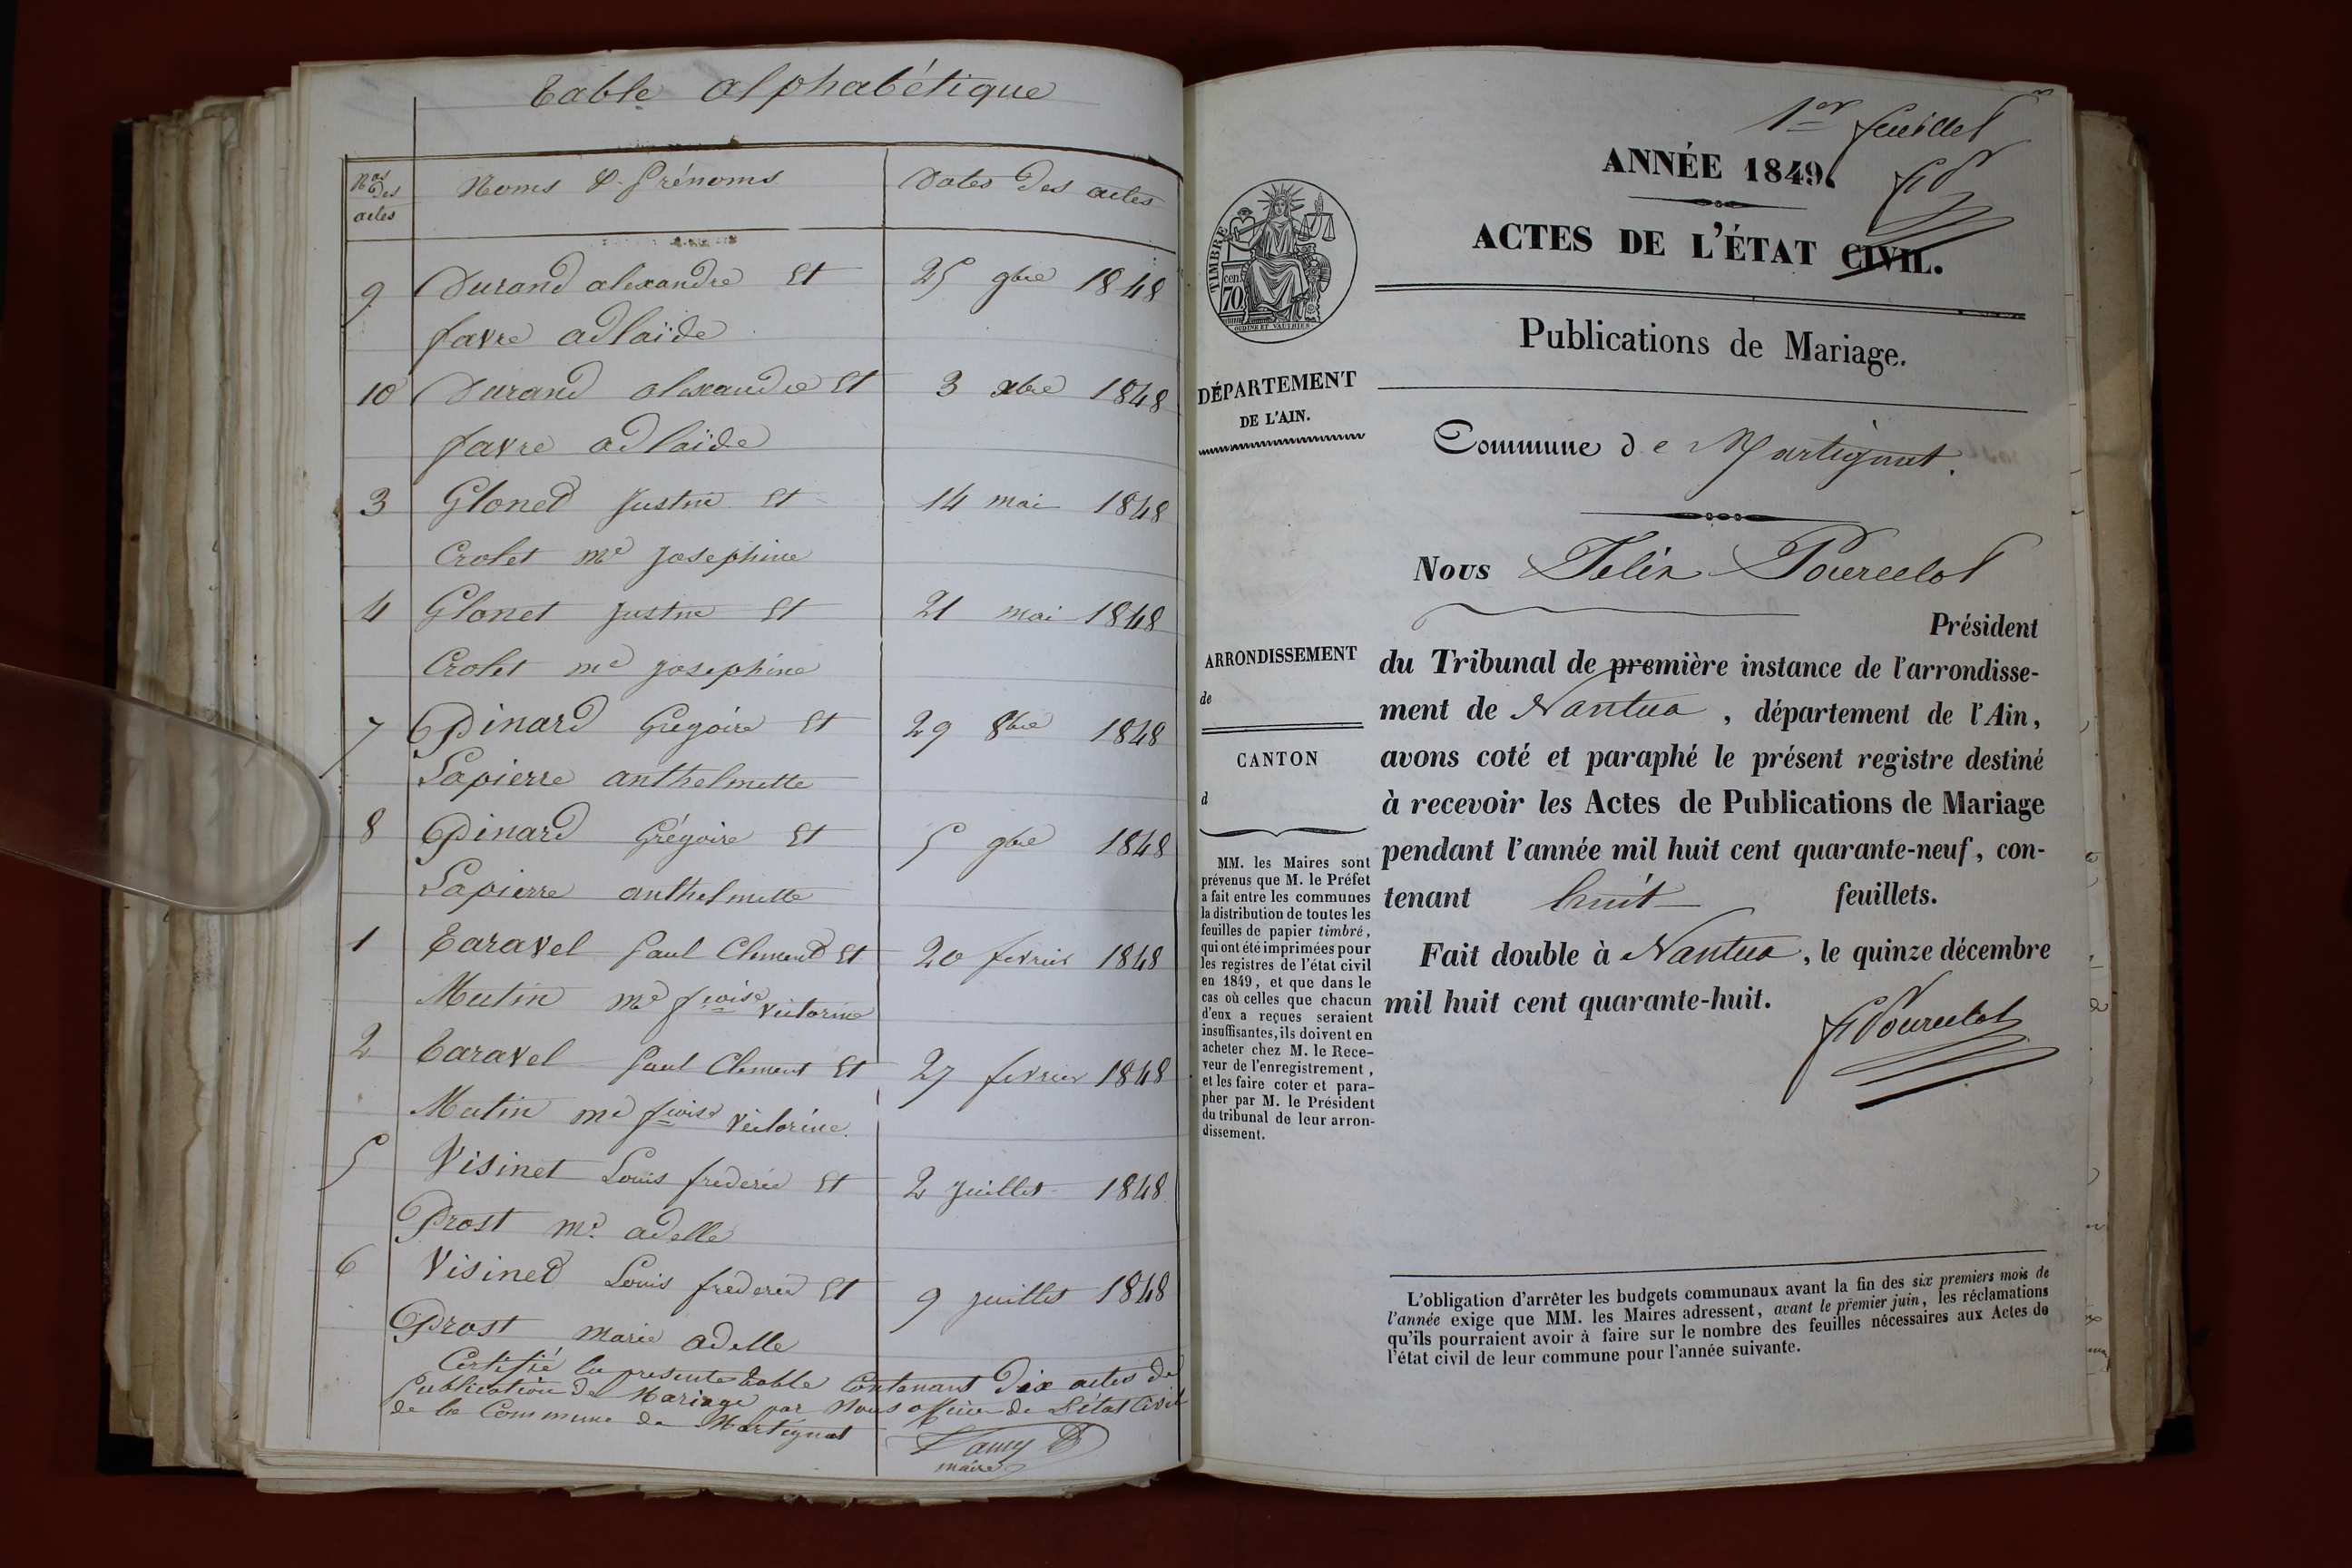 Table alphabétique
Nos des actes
Noms & prénoms
Dates des actes
9 Durand alexandre et 25 9bre 1848
favre adlaïde
10 Durand alexandre et 3 xbre 1848
favre adlaïde
3 Gloned Justin et 14 mai 1848
Crolet me Josephine
4 Glonet Justin et 21 mai 1848
Crolet me josephine
7 Pinard Gregoire et 29 8bre 1848
Lapierre anthelmette
8 Pinard Grégoire et 5 9bre 1848
Lapierre anthelmette
1 Taravel paul Clement et 20 fevrier 1848
Mutin me foise victorine
2 Taravel paul Clement et 27 fevrier 1848
Mutin me foise victorine
5 Visinet Louis frederic et 2 juillet 1848
Prost me adelle
6 Visined Louis frederic et 9 juillet 1848
Prost marie adelle
Certifié la presente table contenant dix actes de
publication de Mariage par Nous officier de L'état Civil
de la Commune de Martignat
maire
1er feuillet
ANNÉE 1849.
ACTES DE L'ÉTAT CIVIL.
TIMBRE
70 cen.
OUDINE ET VAUTHIER
Publications de Mariage.
DÉPARTEMENT
DE L'AIN.
Commune de Martignat.
Nous Félix Pourcelot
Président
ARRONDISSEMENT
de
CANTON
d
du Tribunal de première instance de l'arrondisse-
ment de Nantua, département de l'Ain,
avons coté et paraphé le présent registre destiné
à recevoir les Actes de Publications de Mariage
pendant l'année mil huit cent quarante-neuf, con-
tenant huit feuillets.
Fait double à Nantua, le quinze décembre
mil huit cent quarante-huit.
F Pourcelot
MM. les Maires sont
prévenus que M. le Préfet
a fait entre les communes
la distribution de toutes les
feuilles de papier timbré,
qui ont été imprimées pour
les registres de l'état civil
en 1849, et que dans le
cas où celles que chacun
d'eux a reçues seraient
insuffisantes, ils doivent en
acheter chez M. le Rece-
veur de l'enregistrement,
et les faire coter et para-
pher par M. le Président
du tribunal de leur arron-
dissement.
L'obligation d'arrêter les budgets communaux avant la fin des six premiers mois de
l'année exige que MM. les Maires adressent, avant le premier juin, les réclamations
qu'ils pourraient avoir à faire sur le nombre des feuilles nécessaires aux Actes de
l'état civil de leur commune pour l'année suivante.